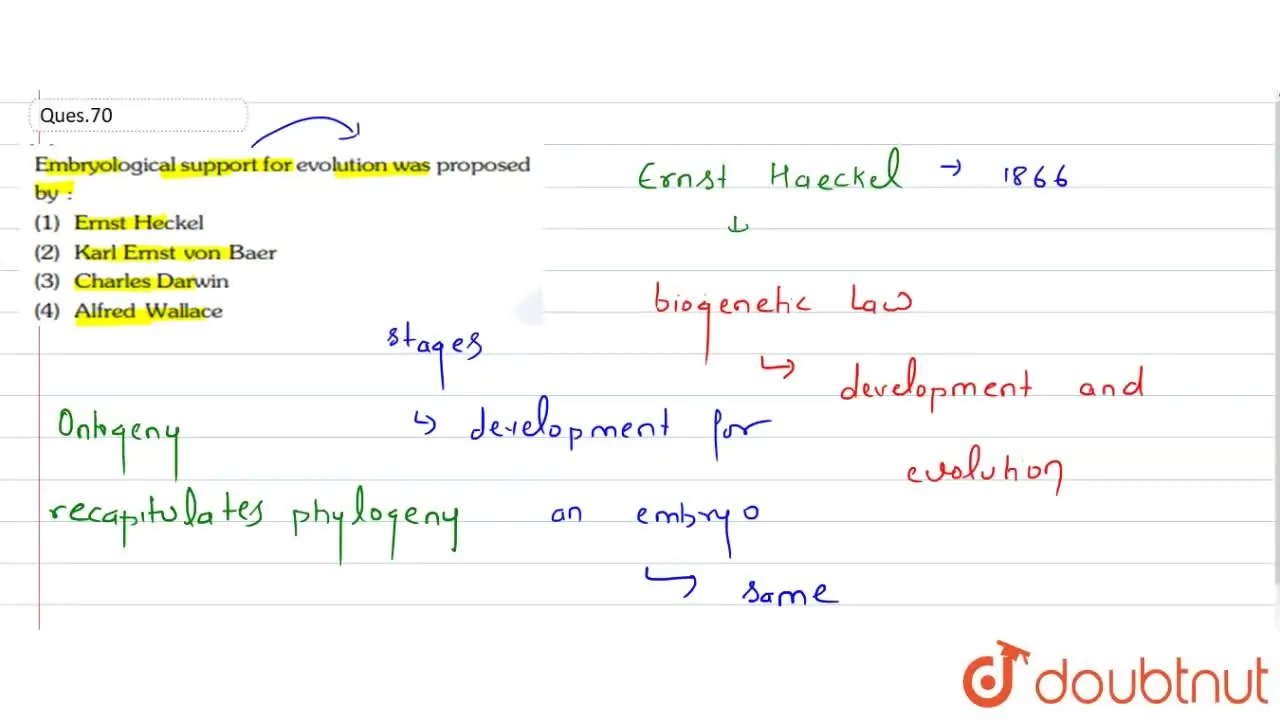 Ques.70
Embryological support for evolution was proposed
by :
(1) Ernst Heckel
(2) Karl Ernst von Baer
(3) Charles Darwin
(4) Alfred Wallace
Ernst Haeckel → 1866
↓
biogenetic law
↳ development and
evolution
stages
↳ development for
an embryo
↳ same
Ontogeny
recapitulates phylogeny
doubtnut